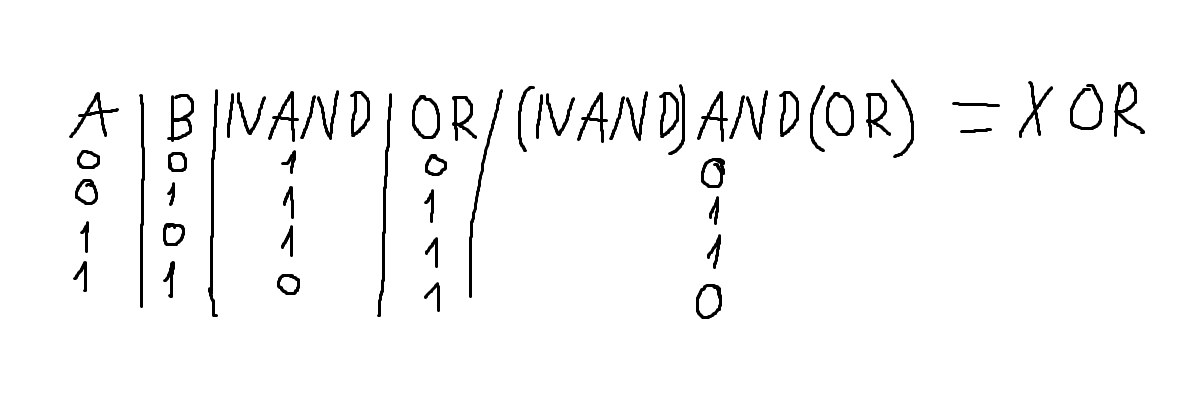 A | B | NAND | OR / (NAND)AND(OR) = XOR
0 | 0 | 1 | 0 | 0
0 | 1 | 1 | 1 | 1
1 | 0 | 1 | 1 | 1
1 | 1 | 0 | 1 | 0